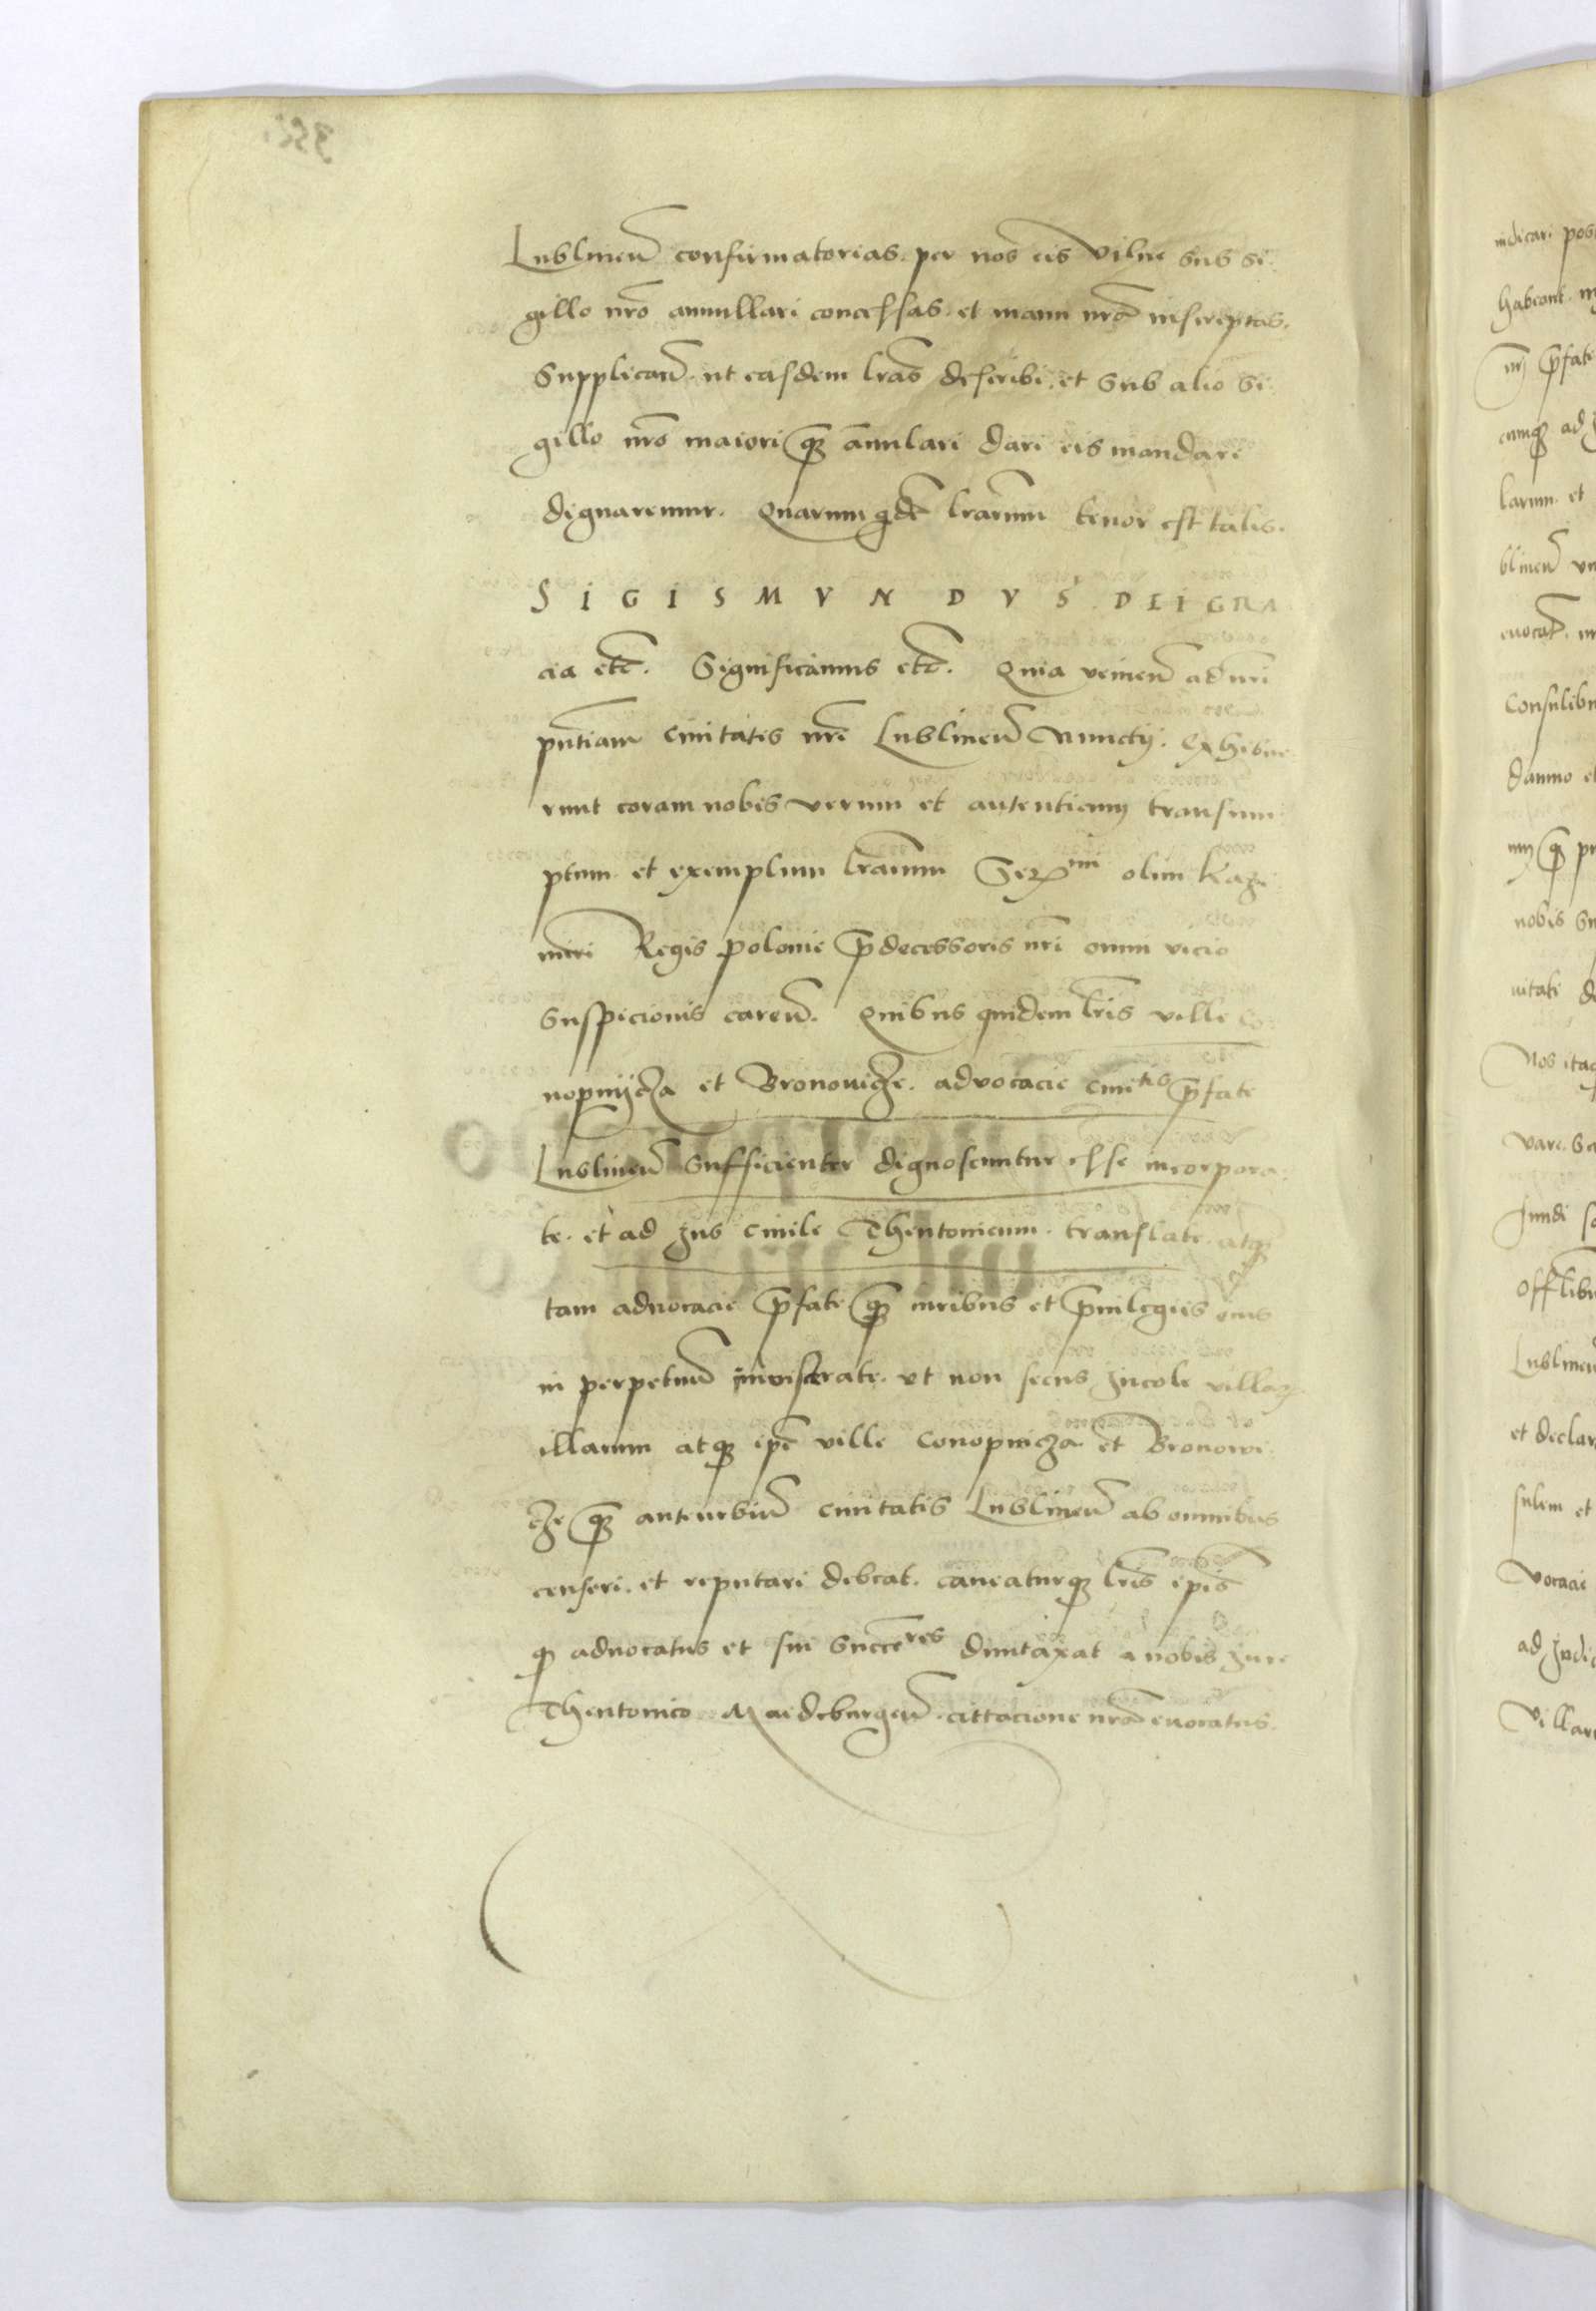 Lublineñ confirmatorias per nos eis Vilne sub si-
gillo nrõ annullari concessas et manu nrã inscriptas.
Supplicañ ut easdem lrãs describi et sub alio si-
gillo nrõ maiori q̃ȝ anulari dari eis mandare
dignaremur. Quarum qdẽ lrãrum tenor est talis.
SIGISMVNDVS DEI GRA
cia etc̃. Significamus etc̃. Quia venieñ ad nrĩ
pñtiam ciuitatis nrẽ Lublineñ Nunctÿ. Exhibue-
runt coram nobis verum et autenticum transum-
ptum et exemplum lrãrum Serᵐⁱ olim Kazi-
miri Regis polonie p̃decessoris nrĩ omni vicio
suspicionis careñ. Quibus quidem lrĩs ville Co-
nopnÿcza et Bronouicze. advocacie ciuiᵗⁱˢ p̃fate
Lublineñ sufficienter dignoscuntur esse incorpora-
te. et ad Jus ciuile Theutonicum. translate. atqȝ
tam aduocacie p̃fate q̃ȝ iuribus et p̃uilegiis eius
in perpetuũ inviscerate. vt non secus Jncole villaꝝ
illarum atqȝ ip̃e ville Conopnicza et Bronowi-
cze q̃ȝ anteurbiũ ciuitatis Lublineñ ab omnibus
censeri. et reputari debeat. caueaturqȝ lrĩs ip̃is
qȝ aduocatus et sui Succeʳᵉˢ duntaxat a nobis Jure
Theutonico Maideburgeñ. cittacione nrã euocatus.
judicari pos
habeant
nrĩ p̃fate
cumqȝ ad
larum et
blineñ
euocat̃.
Consulibu
damno et
nobis Su
uitati de
Nos itaq
vare.
fundi
Off̃libu
Lublineñ
et declar
sulem et
vocacie
ad Judic
Villaru